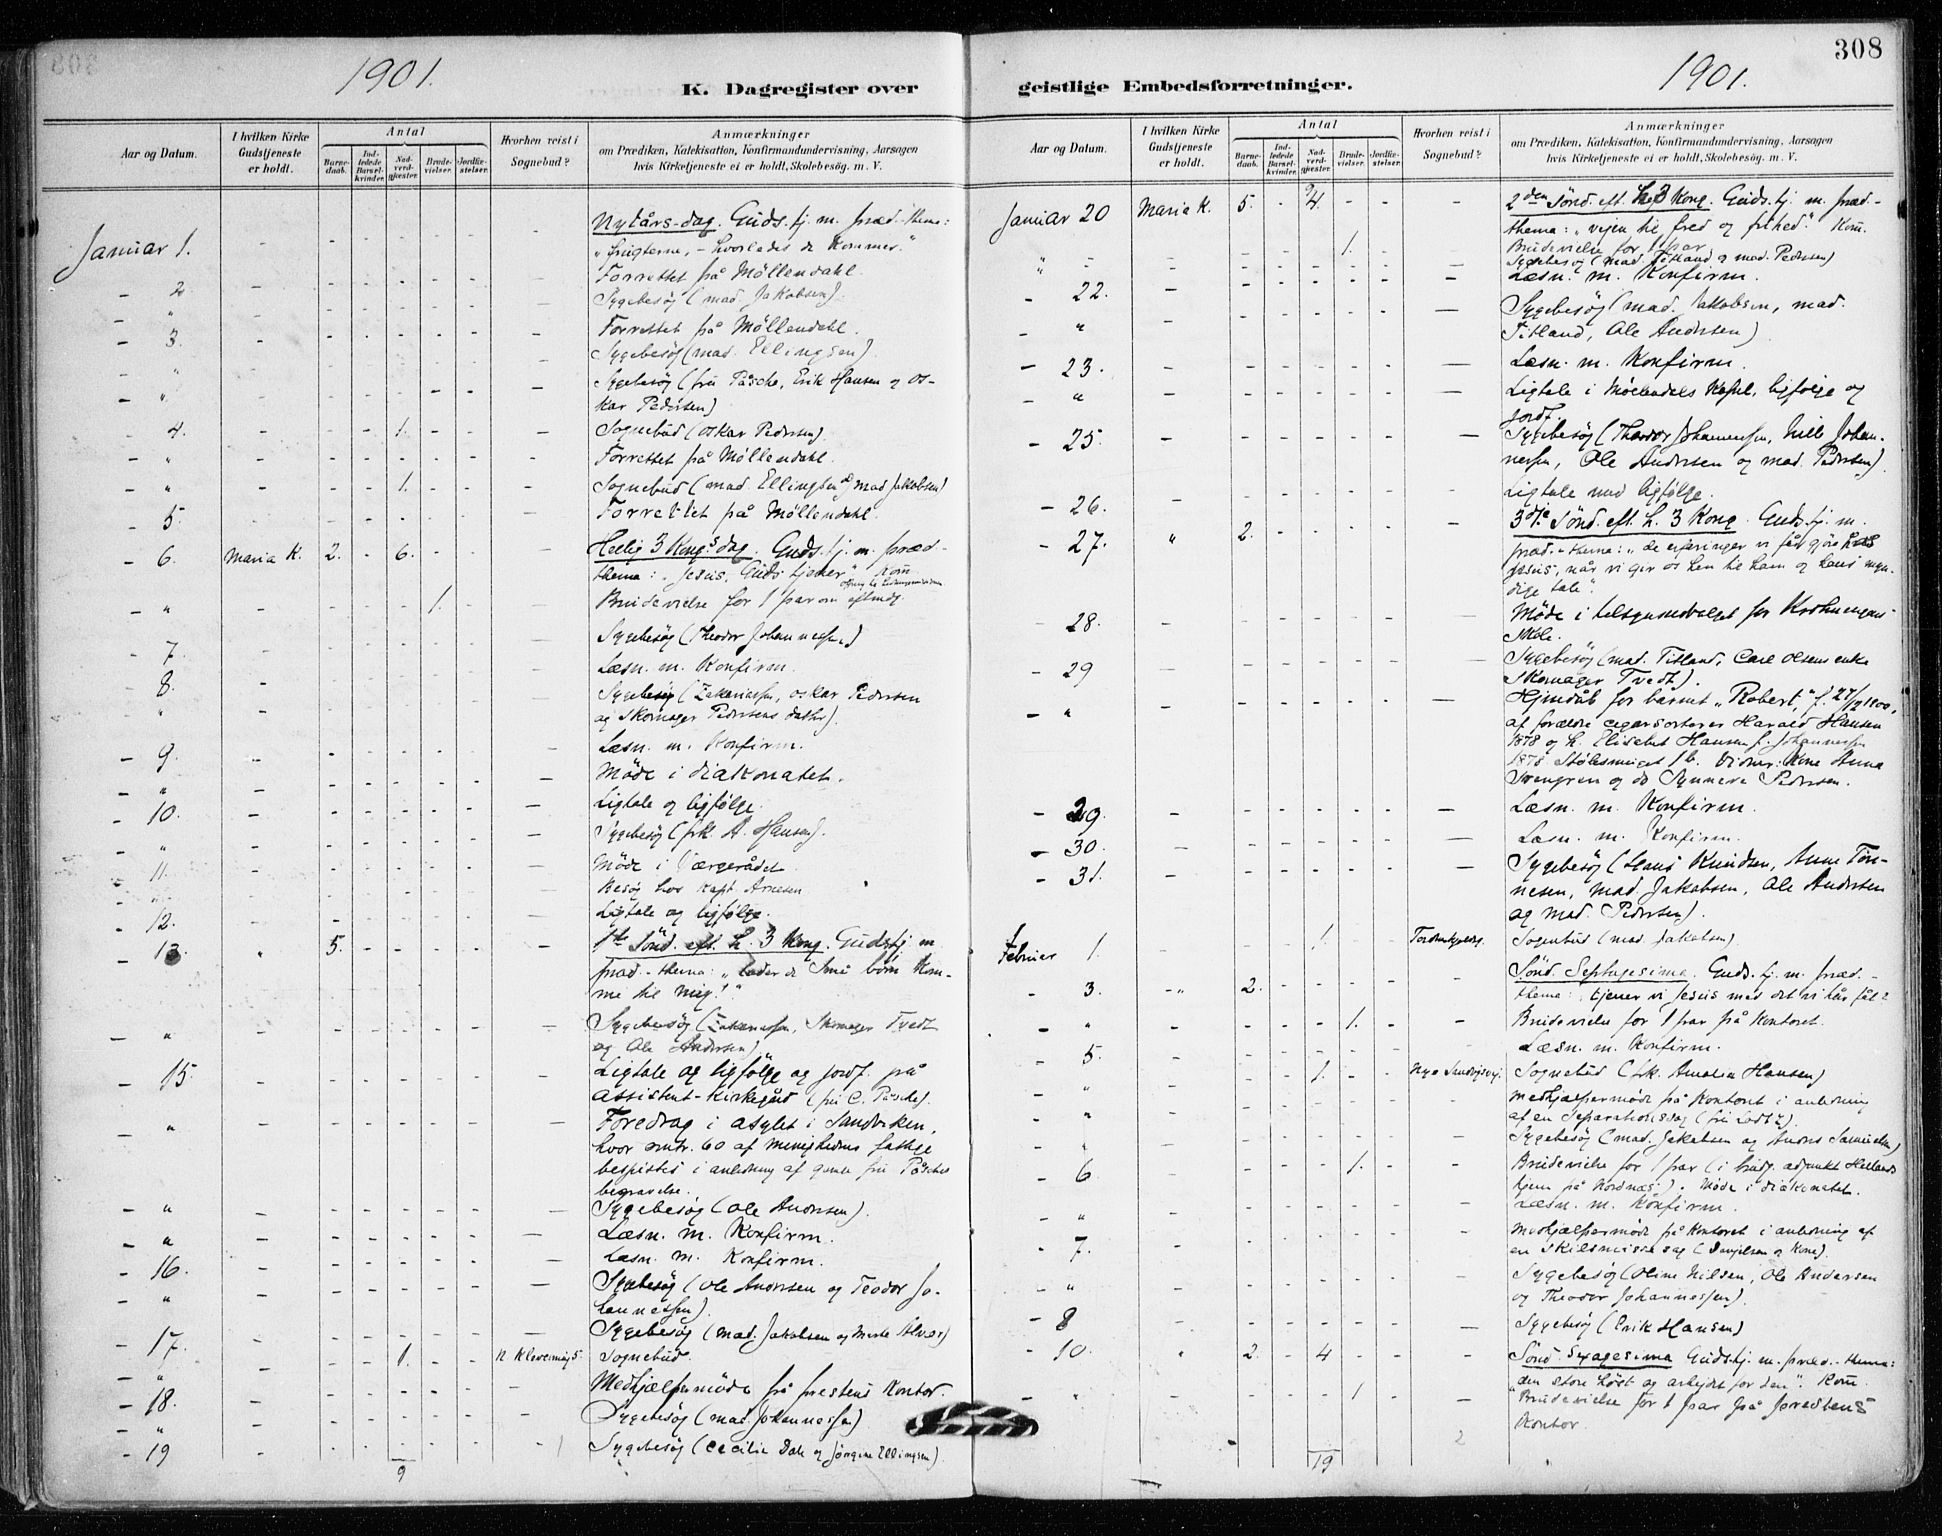 308
1901.
K. Dagregister over
geistlige Embedsforretninger.
1901.
Aar og Datum.
I hvilken Kirke Gudstjeneste er holdt.
Antal
Barnedaab.
Indledede Barselkvinder.
Nadverdgjæster.
Brudevielser.
Jordfæstelser.
Hvorhen reist i Sognebud?
Anmærkninger
om Prædiken, Katekisation, Konfirmandundervisning, Aarsagen
hvis Kirketjeneste ei er holdt, Skolebesøg. m. V.
Januar 1. Nytårs-dag. Guds.tj. m. præd.-thema:
"frugterne, – hvorledes de kommer."
Forrettet på Møllendahl.
- 2. Sygebesøg (mad. Jakobsen).
- " Forrettet på Møllendahl.
- 3. Sygebesøg (mad. Ellingsen).
- " Sygebesøg (fru Påsche, Erik Hansen og Os-
kar Pedersen)
- 4. 1. Sognebud (Oskar Pedersen).
- " Forrettet på Møllendahl.
- " 1. Sognebud (mad. Ellingsen og mad Jakobsen)
- 5. Forrettet på Møllendahl.
- 6. Maria K. 2. - 6. Hellig 3 Kong.s dag. Guds.tj. m. præd-
thema: "Jesus, Guds tjener" Kom.
- " 1. Brudevielse for 1 par
- 7. Sygebesøg (Theodor Johannessen)
- 8. Læsn. m. Konfirm.
- " Sygebesøg (Zakariassen, Oskar Pedersen
og Skomager Pedersens datter).
- 9. Læsn. m. Konfirm.
- " Møde i diakonatet.
- 10. Ligtale og ligfølge.
- " Sygebesøg (frk. A. Hansen).
- 11. Møde i Værgerådet
- " Besøg hos kapt Arnesen
- 12. Ligtale og ligfølge.
- 13. " 5. 1ste Sønd. eft. h. 3 Kong. Gudstj. m.
præd.-thema: "lader de små børn kom-
me til mig!"
- " Sygebesøg (Zakariassen, Skomager Tvedt
og Ole Andersen)
- 15. Ligtale og ligfølge og jordf. på
Assistent-kirkegård (fru C. Påsche).
- " Foredrag i asylet i Sandviken,
hvor omtr. 60 af menighedens fattige
bespistes i anledning af gamle fru Påsches
begravelse.
- " Sygebesøg (Ole Andersen).
- " Læsn. m. Konfirm.
- 16. Læsn. m. Konfirm.
- " Sygebesøg (Ole Andersen og Teodor Jo-
hannessen).
- 17. Sygebesøg (mad. Jakobsen og Alvær)
- " 1. Sognebud.
- 18. Medhjælpermøde på prestens Kontor.
- " Sygebesøg (mad. Johannessen)
- 19 Sygebesøg (Cecilie Dale og Jørgine Ellingsen)
9
Aar og Datum.
I hvilken Kirke Gudstjeneste er holdt.
Antal
Barnedaab.
Indledede Barselkvinder.
Nadverdgjæster.
Brudevielser.
Jordfæstelser.
Hvorhen reist i Sognebud?
Anmærkninger
om Prædiken, Katekisation, Konfirmandundervisning, Aarsagen
hvis Kirketjeneste ei er holdt, Skolebesøg. m. V.
9
Januar 20 Maria K. 5. - 4. 2den Sønd. eft. h. 3 Kong. Guds.tj. m. præd-
thema: "vejen til fred og frihed." Kom.
1. Brudevielse for 1 par
" Sygebesøg (mad. Titland og mad. Pedersen)
- 22. Læsn. m. Konfirm.
- " Sygebesøg (mad. Jakobsen, mad.
Titland, Ole Andersen)
- 23. Læsn. m. Konfirm.
- " Ligtale i Møllendals Kapel, ligfølge og
jordf.
- 25. Sygebesøg (Theodor Johannessen, Nills Johan-
nessen, Ole Andersen og mad. Pedersen)
- 26. Ligtale med ligfølge.
- 27. " 2. 3die Sønd. eft. h. 3 Kong. Guds.tj. m.
præd.-thema: "de erfaringer vi får gjøre
Jesus, når vi gir os hen til ham og hans myn-
dige tale".
- 28. Møde i tilsynsudvalget for Krohnengens
Skole.
- 29 Sygebesøg (mad. Titland, Carl Olsens enke
Skomager Tvedt).
- " Hjemdåb for barnet "Robert," f. 27/12 1900,
af forældre cigarsorterer Harald Hansen
1878 og h. Elisabet Hansen f. Johannessen
1878 Stølesmuget 16. Vidner: Kone Anna
Svengren og do Synneva Pedersen.
- 29. Læsn. m. Konfirm.
- 30. Læsn. m. Konfirm.
- 31. Sygebesøg (Hans Knudsen, Anne Tøn-
nesen, mad. Jakobsen, Ole Andersen
og mad. Pedersen).
Februar 1. 1. Sognebud (mad. Jakobsen).
- 3. - " 2. Sønd. Septagesima. Guds.tj. m. præd.-
thema: tjener vi Jesus med det vi har fåt?
- " 1. Brudevielse for 1 par på Kontoret.
- 5. Læsn. m. Konfirm.
" 1. Nye Sandvigsvej. Sognebud (frk. Amalia Hansen)
" Medhjælpermøde på Kontoret i anledning
af en separationssag
" Sygebesøg (mad. Jakobsen og Anders Samuelsen)
- 6 1. Brudevielse for 1 par (i brudg. adjunkt Hellands
hjem på Nordnæs). Møde i diakonatet.
" Læsn. m. Konfirm.
- 7. Medhjælpermøde på Kontoret i anledning af
en skilsmissesag (Danjelsen og Kone).
" Sygebesøg (Oline Nilsen, Ole Andersen
og Theodor Johannessen).
- 8 Sygebesøg (Erik Hansen)
- 10 " 2. - 4 Sønd. Sexagesima Gudstj. m. præd.-thema:
"den store høst og arbejdet for den". Kom.
- " 1 Brudevielse for 1 par på præstens
Kontor.
19
2